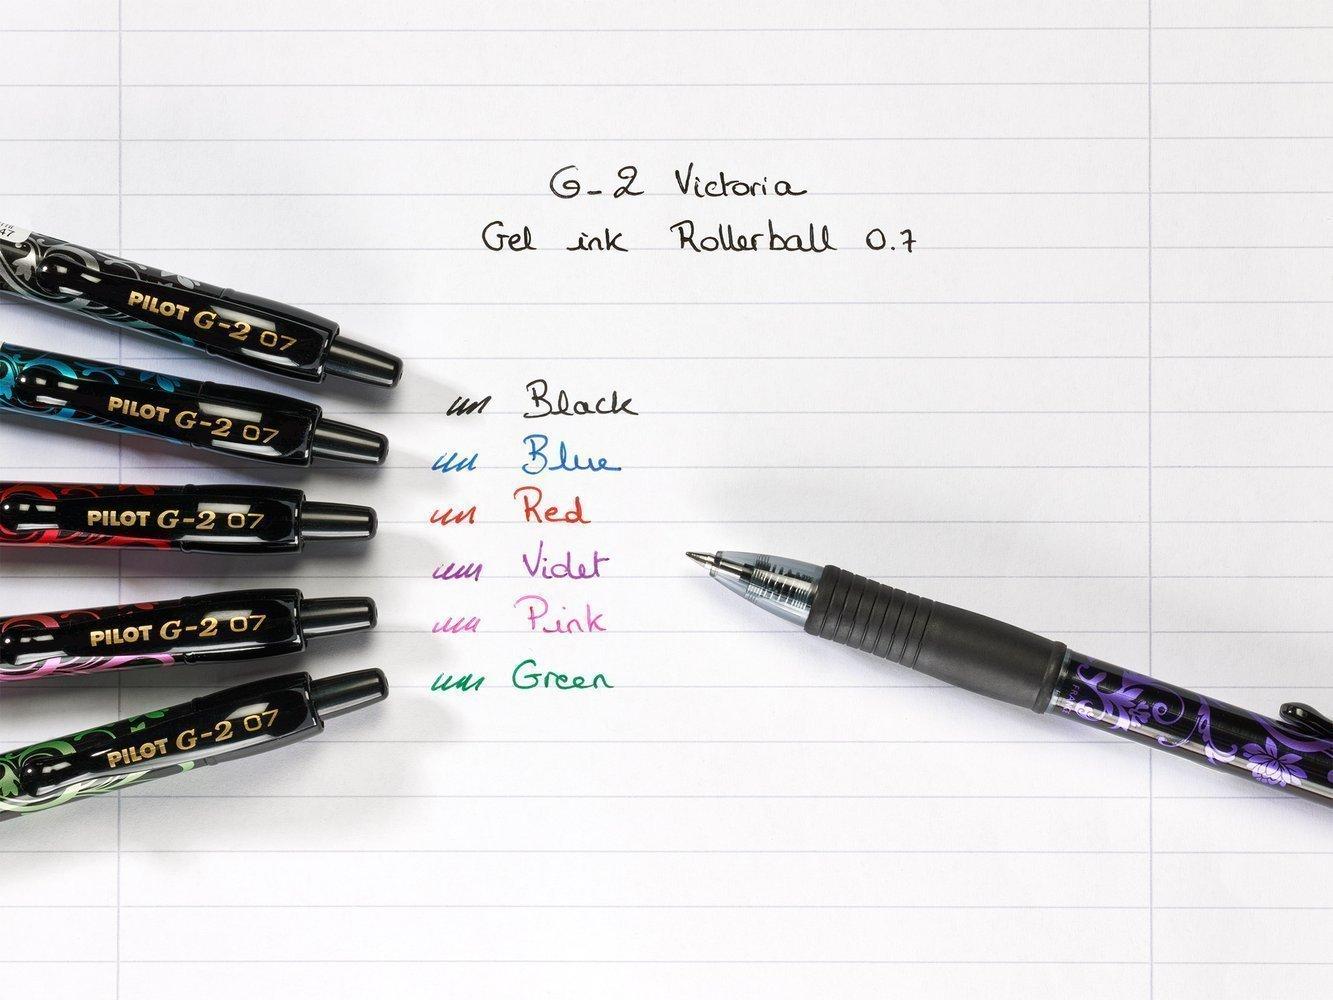 G-2 Victoria
Gel ink Rollerball 0.7
PILOT G-2 07
PILOT G-2 07
PILOT G-2 07
PILOT G-2 07
PILOT G-2 07
Black
Blue
Red
Violet
Pink
Green
47
FRANCE